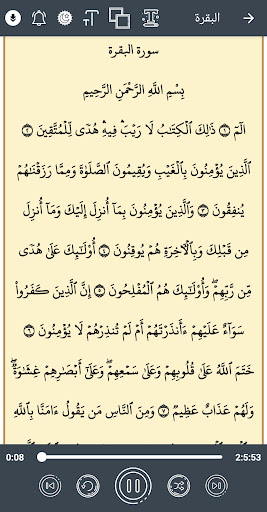 البقرة
سورة البقرة
بِسْمِ اللَّهِ الرَّحْمَنِ الرَّحِيمِ
الٓمٓ ۝١ ذَٰلِكَ ٱلْكِتَٰبُ لَا رَيْبَ ۛ فِيهِ ۛ هُدًى لِّلْمُتَّقِينَ ۝٢
ٱلَّذِينَ يُؤْمِنُونَ بِٱلْغَيْبِ وَيُقِيمُونَ ٱلصَّلَوٰةَ وَمِمَّا رَزَقْنَٰهُمْ
يُنفِقُونَ ۝٣ وَٱلَّذِينَ يُؤْمِنُونَ بِمَآ أُنزِلَ إِلَيْكَ وَمَآ أُنزِلَ
مِن قَبْلِكَ وَبِٱلْءَاخِرَةِ هُمْ يُوقِنُونَ ۝٤ أُو۟لَٰٓئِكَ عَلَىٰ هُدًى
مِّن رَّبِّهِمْ ۖ وَأُو۟لَٰٓئِكَ هُمُ ٱلْمُفْلِحُونَ ۝٥ إِنَّ ٱلَّذِينَ كَفَرُوا۟
سَوَآءٌ عَلَيْهِمْ ءَأَنذَرْتَهُمْ أَمْ لَمْ تُنذِرْهُمْ لَا يُؤْمِنُونَ ۝٦
خَتَمَ ٱللَّهُ عَلَىٰ قُلُوبِهِمْ وَعَلَىٰ سَمْعِهِمْ ۖ وَعَلَىٰٓ أَبْصَٰرِهِمْ غِشَٰوَةٌ ۖ
وَلَهُمْ عَذَابٌ عَظِيمٌ ۝٧ وَمِنَ ٱلنَّاسِ مَن يَقُولُ ءَامَنَّا بِٱللَّهِ
0:08
2:5:53